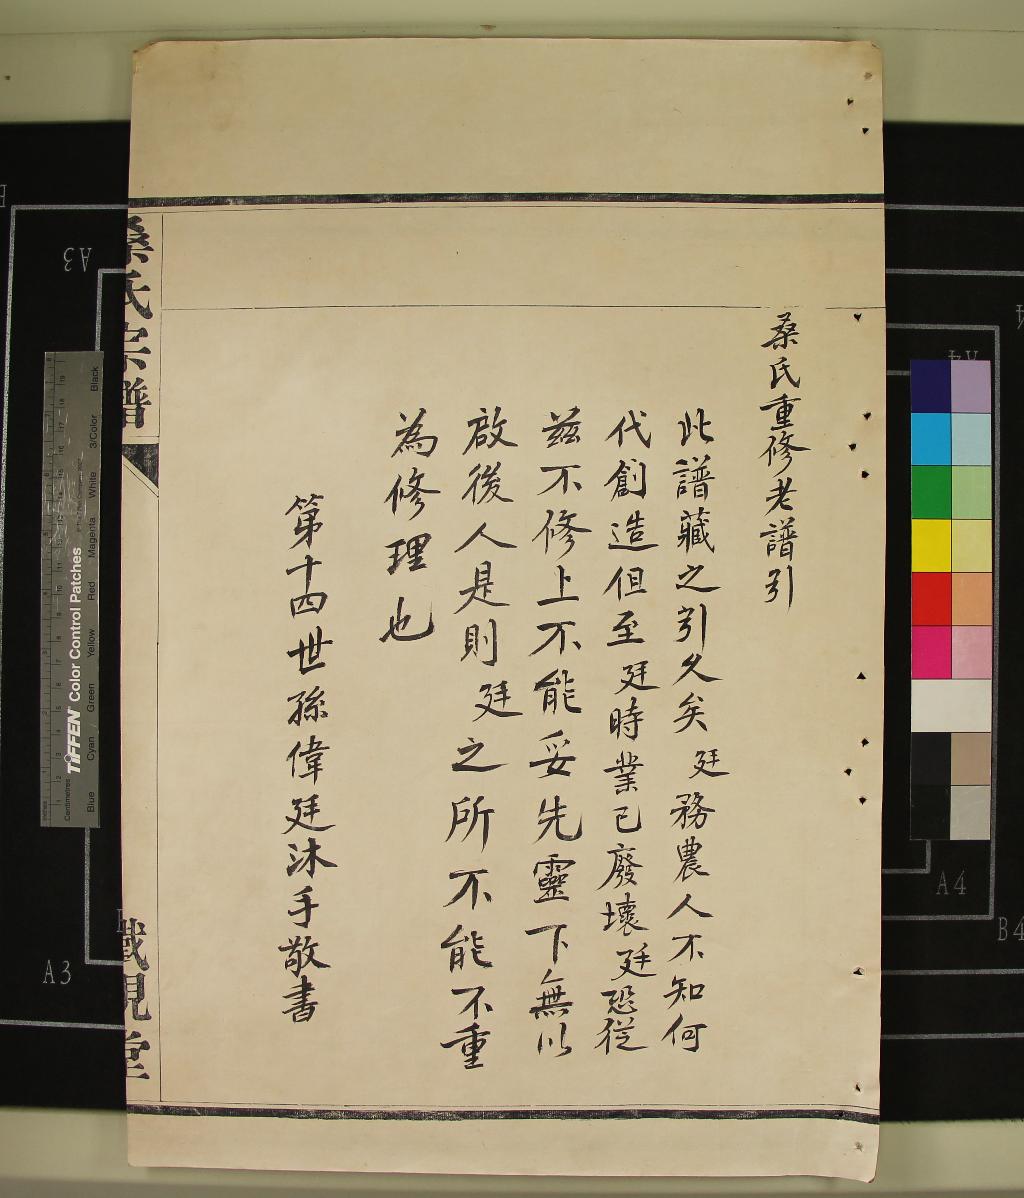 桑氏重修老譜引
此譜藏之引久矣廷務農人不知何
代創造但至廷時業已廢壞廷恐從
茲不修上不能妥先靈下無以
啟後人是則廷之所不能不重
為修理也
第十四世孫偉廷沐手敬書
桑氏宗譜
堂
A3
A3
A4
A4
B4
TIFFEN Color Control Patches
Blue Cyan Green Yellow Red Magenta White 3/Color Black
Centimetres
Inches